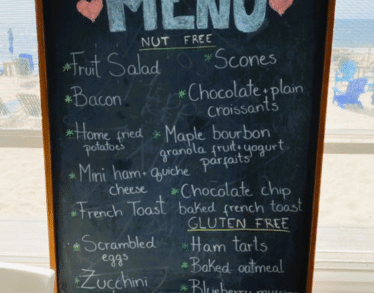 MENU
NUT FREE
*Fruit Salad
*Bacon
*Home fried
potatoes
*Mini ham + quiche
cheese
*French Toast
*Scrambled
eggs
*Zucchini
*Scones
*Chocolate + plain
croissants
*Maple bourbon
granola fruit + yogurt
parfaits
*Chocolate chip
baked french toast
GLUTEN FREE
*Ham tarts
*Baked oatmeal
*Blueberry